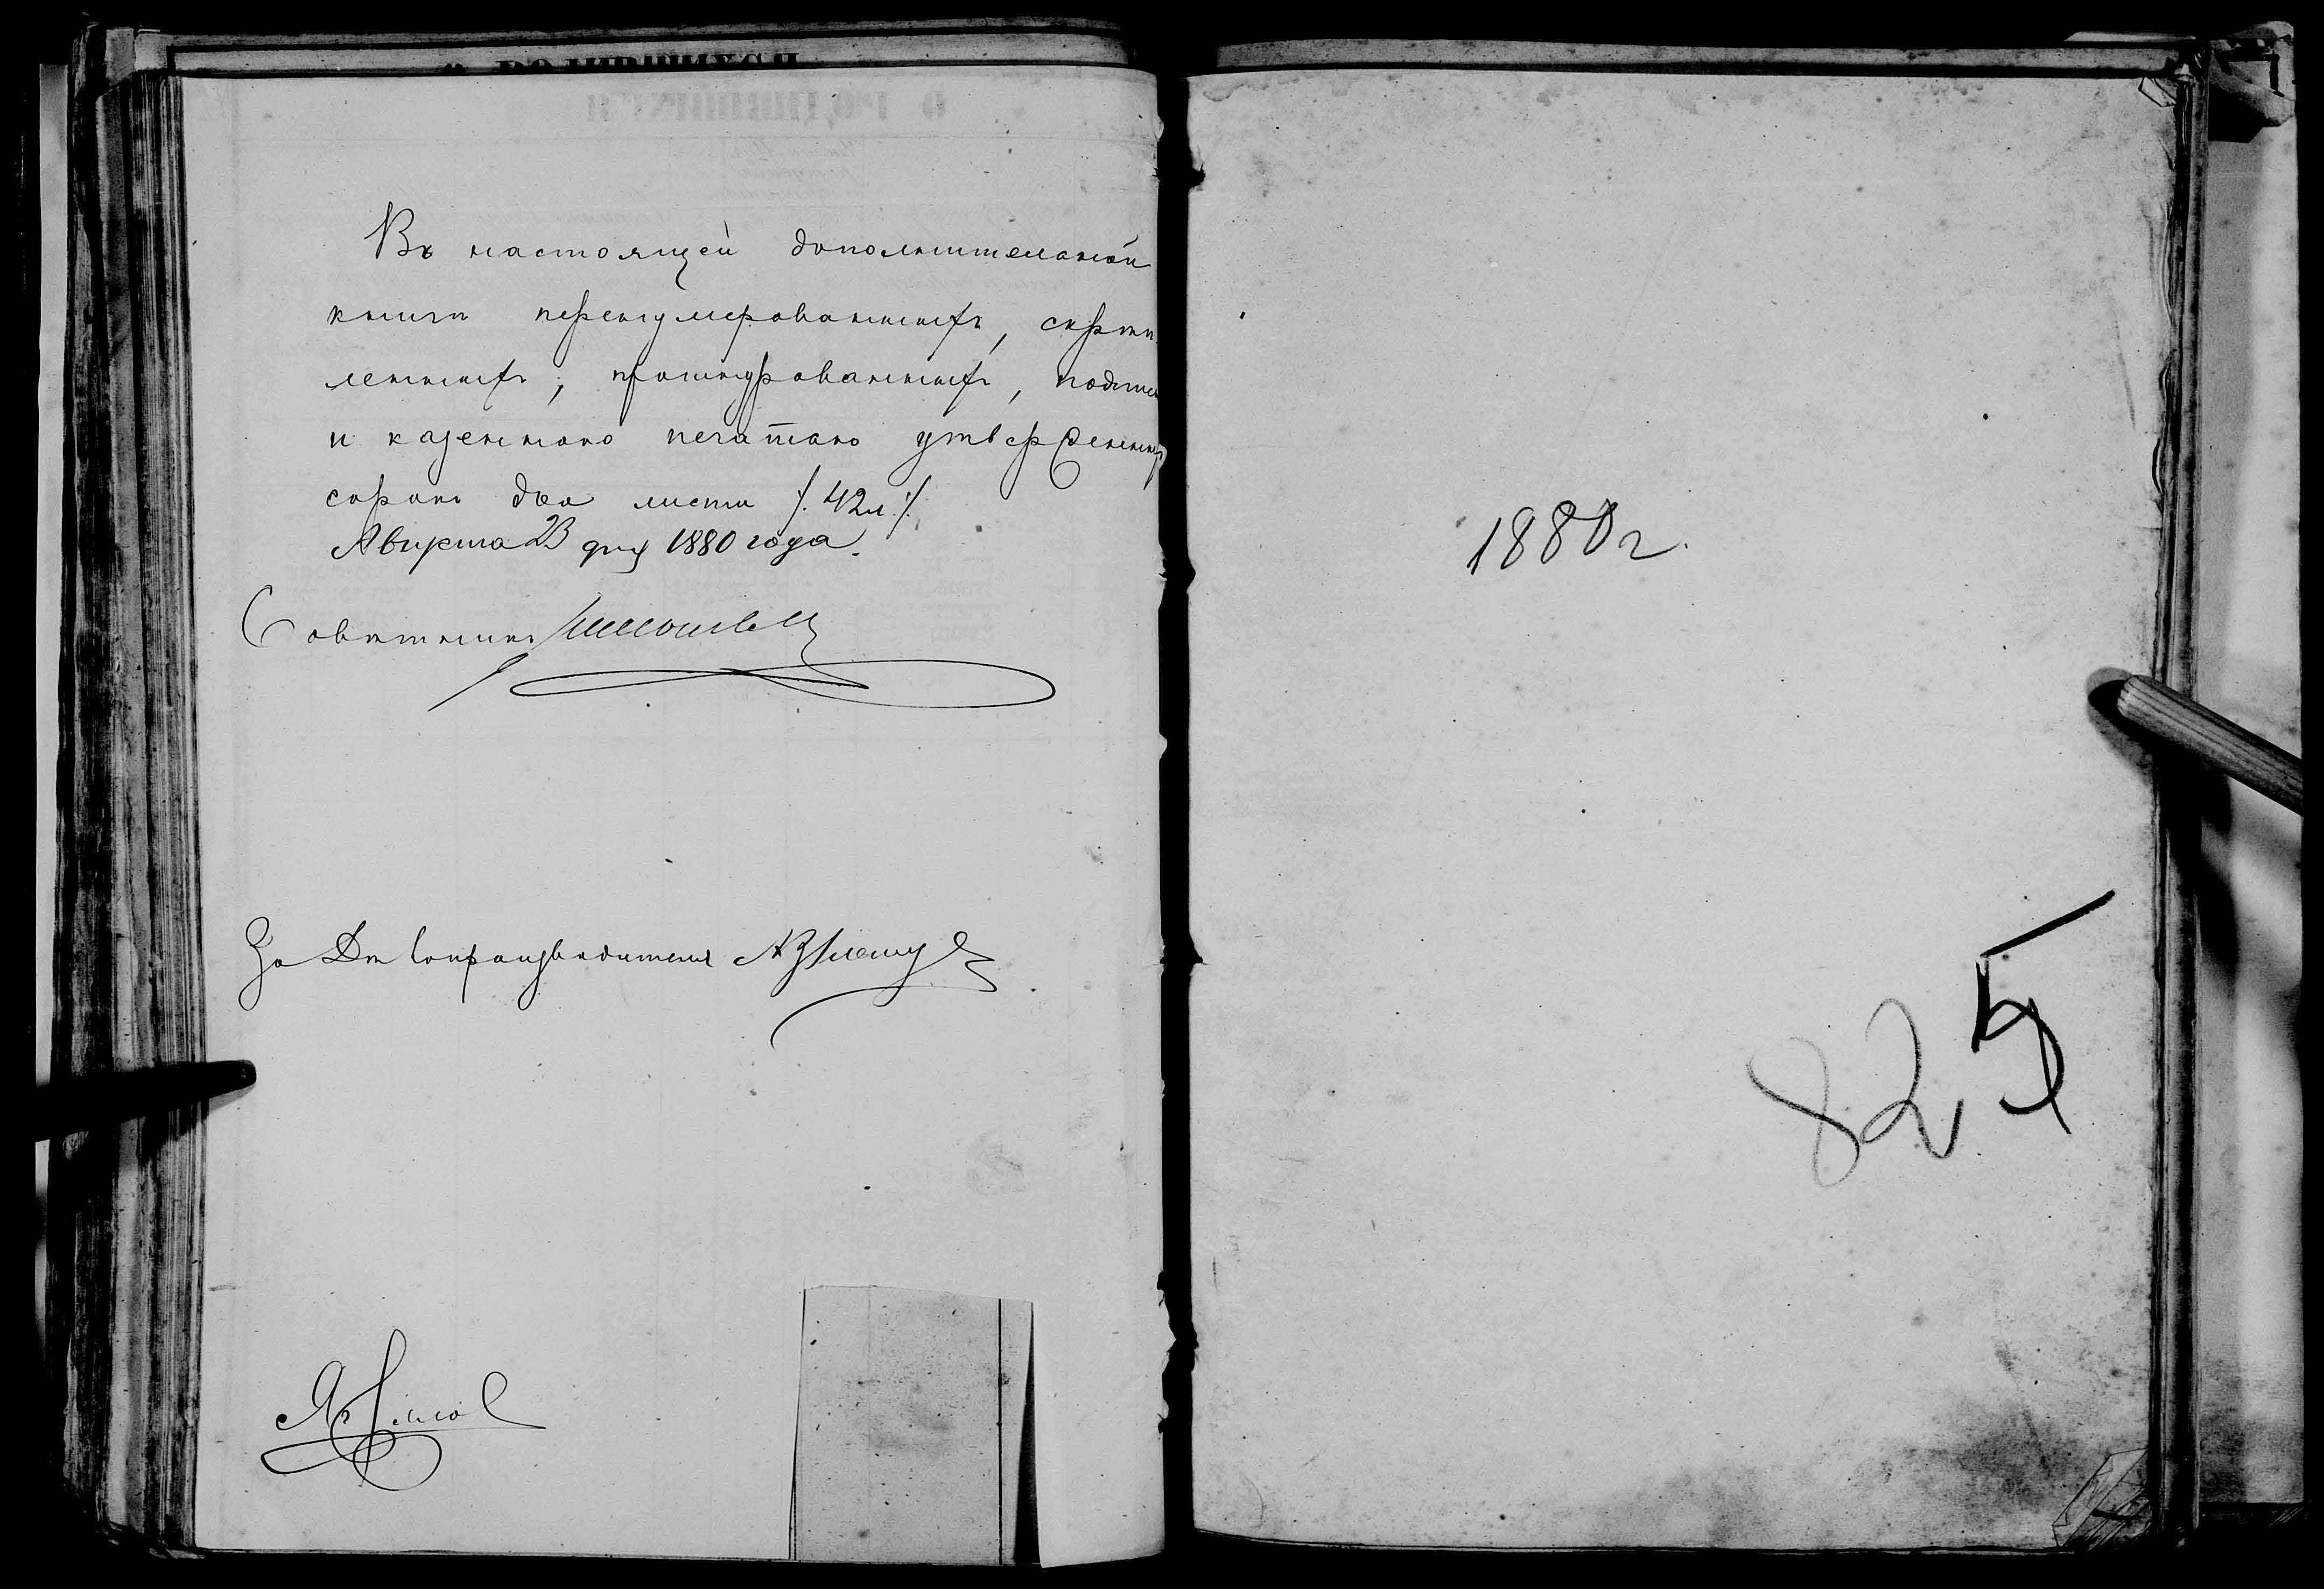 О РОДИВШИХСЯ
Въ настоящей дополнительной
книгѣ перенумерованныхъ, скрѣп-
ленныхъ, прошнурованныхъ,
и казенною печатью утвержденныхъ
сорокъ два листа /. 42 л. /.
Августа 23 дня 1880 года.
Совѣтникъ
За Дѣлопроизводителя
1880 г.
825